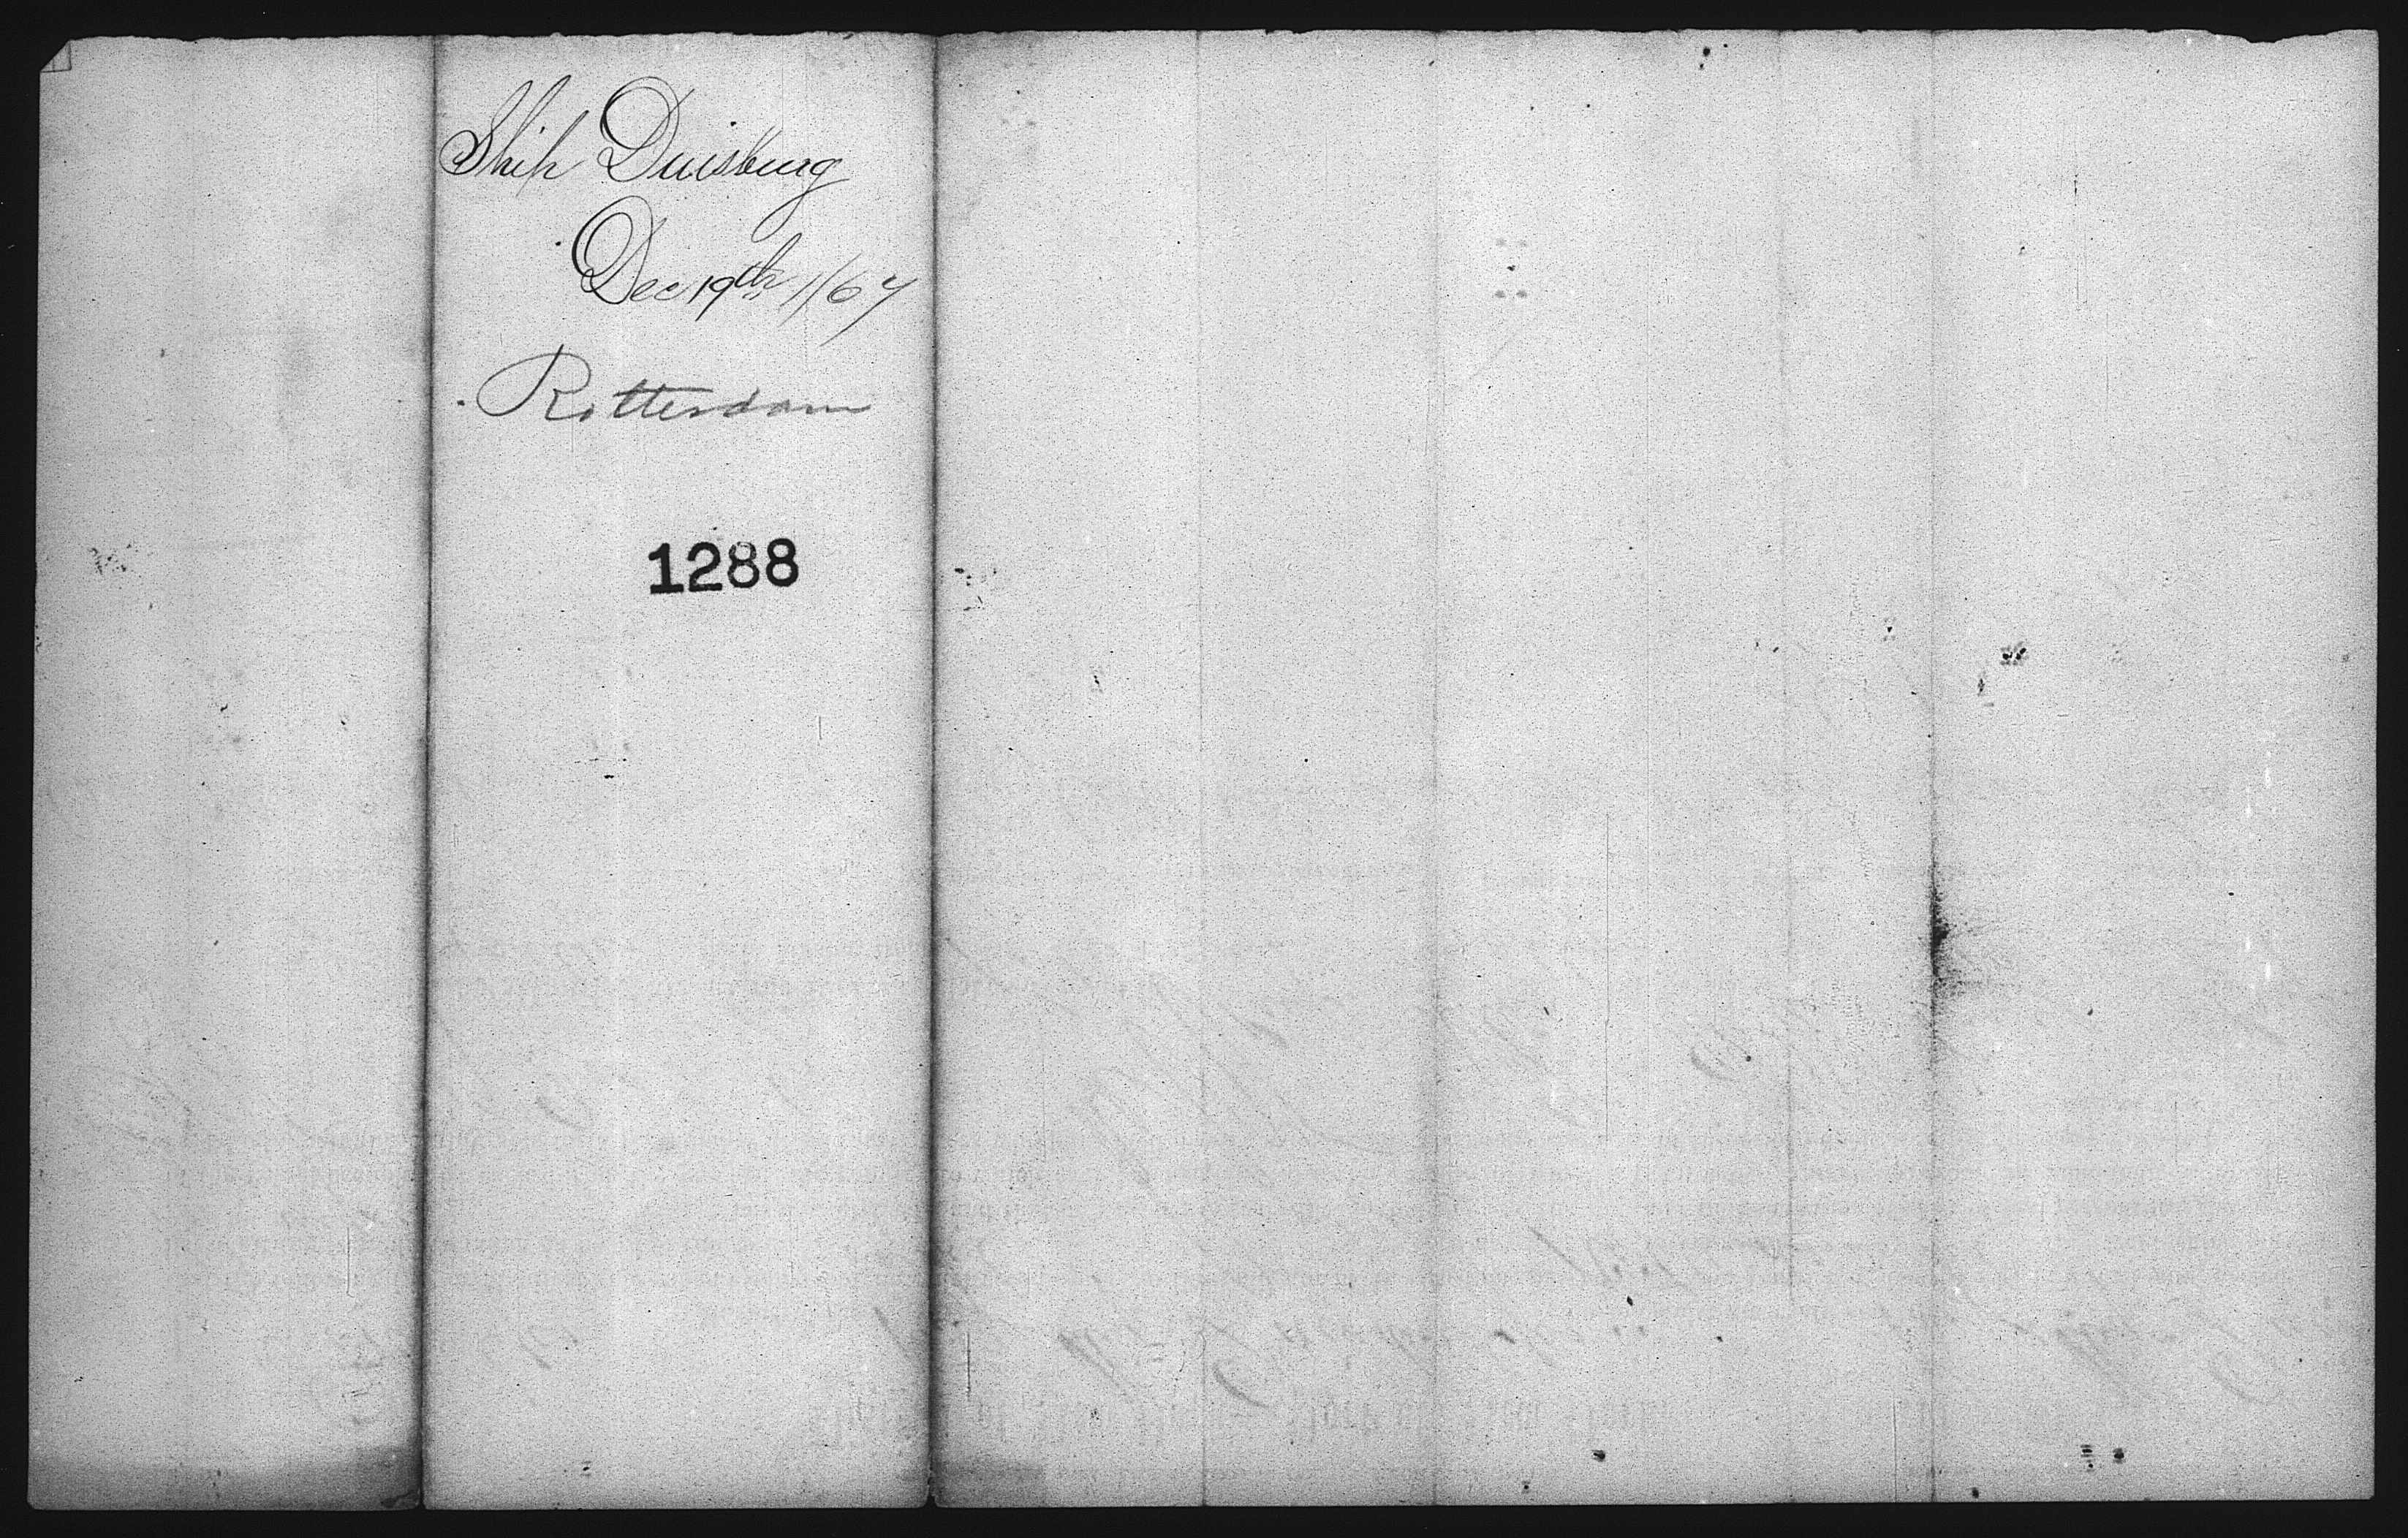 Ship Duisburg
Dec 19th 1/67
Rotterdam
1288